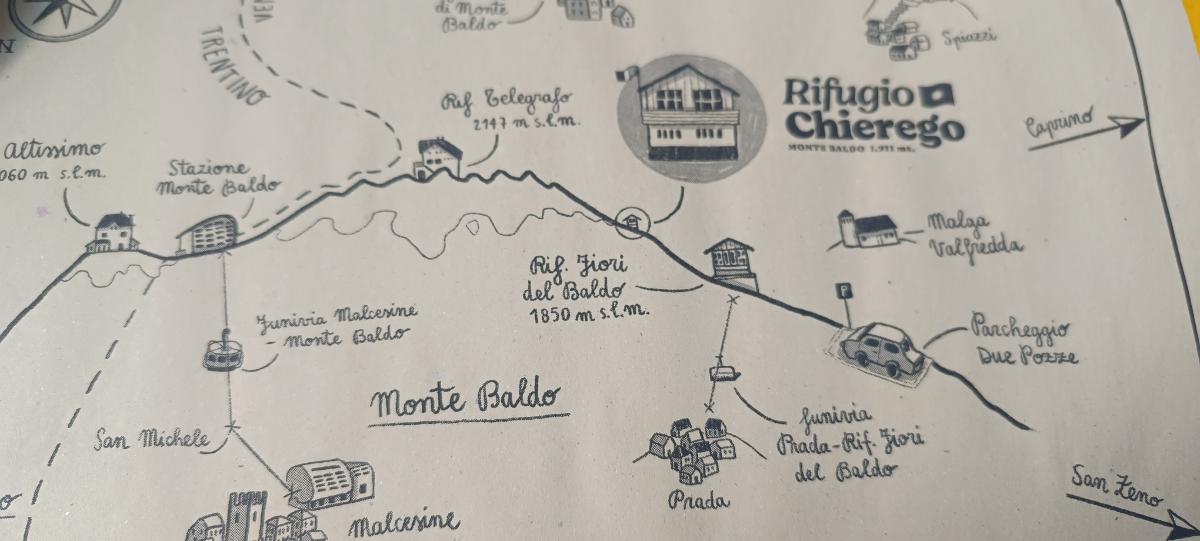 N
VEN
TRENTINO
di Monte
Baldo
Spiazzi
Rif Telegrafo
2147 m s.l.m.
Rifugio
Chierego
MONTE BALDO 1.911 mt.
Caprino
Altissimo
060 m s.l.m.
Stazione
Monte Baldo
Malga
Valfredda
Rif. Fiori
del Baldo
1850 m s.l.m.
P
Parcheggio
Due Pozze
Funivia Malcesine
- Monte Baldo
Monte Baldo
San Michele
Funivia
Prada-Rif. Fiori
del Baldo
Prada
San Zeno
o
Malcesine